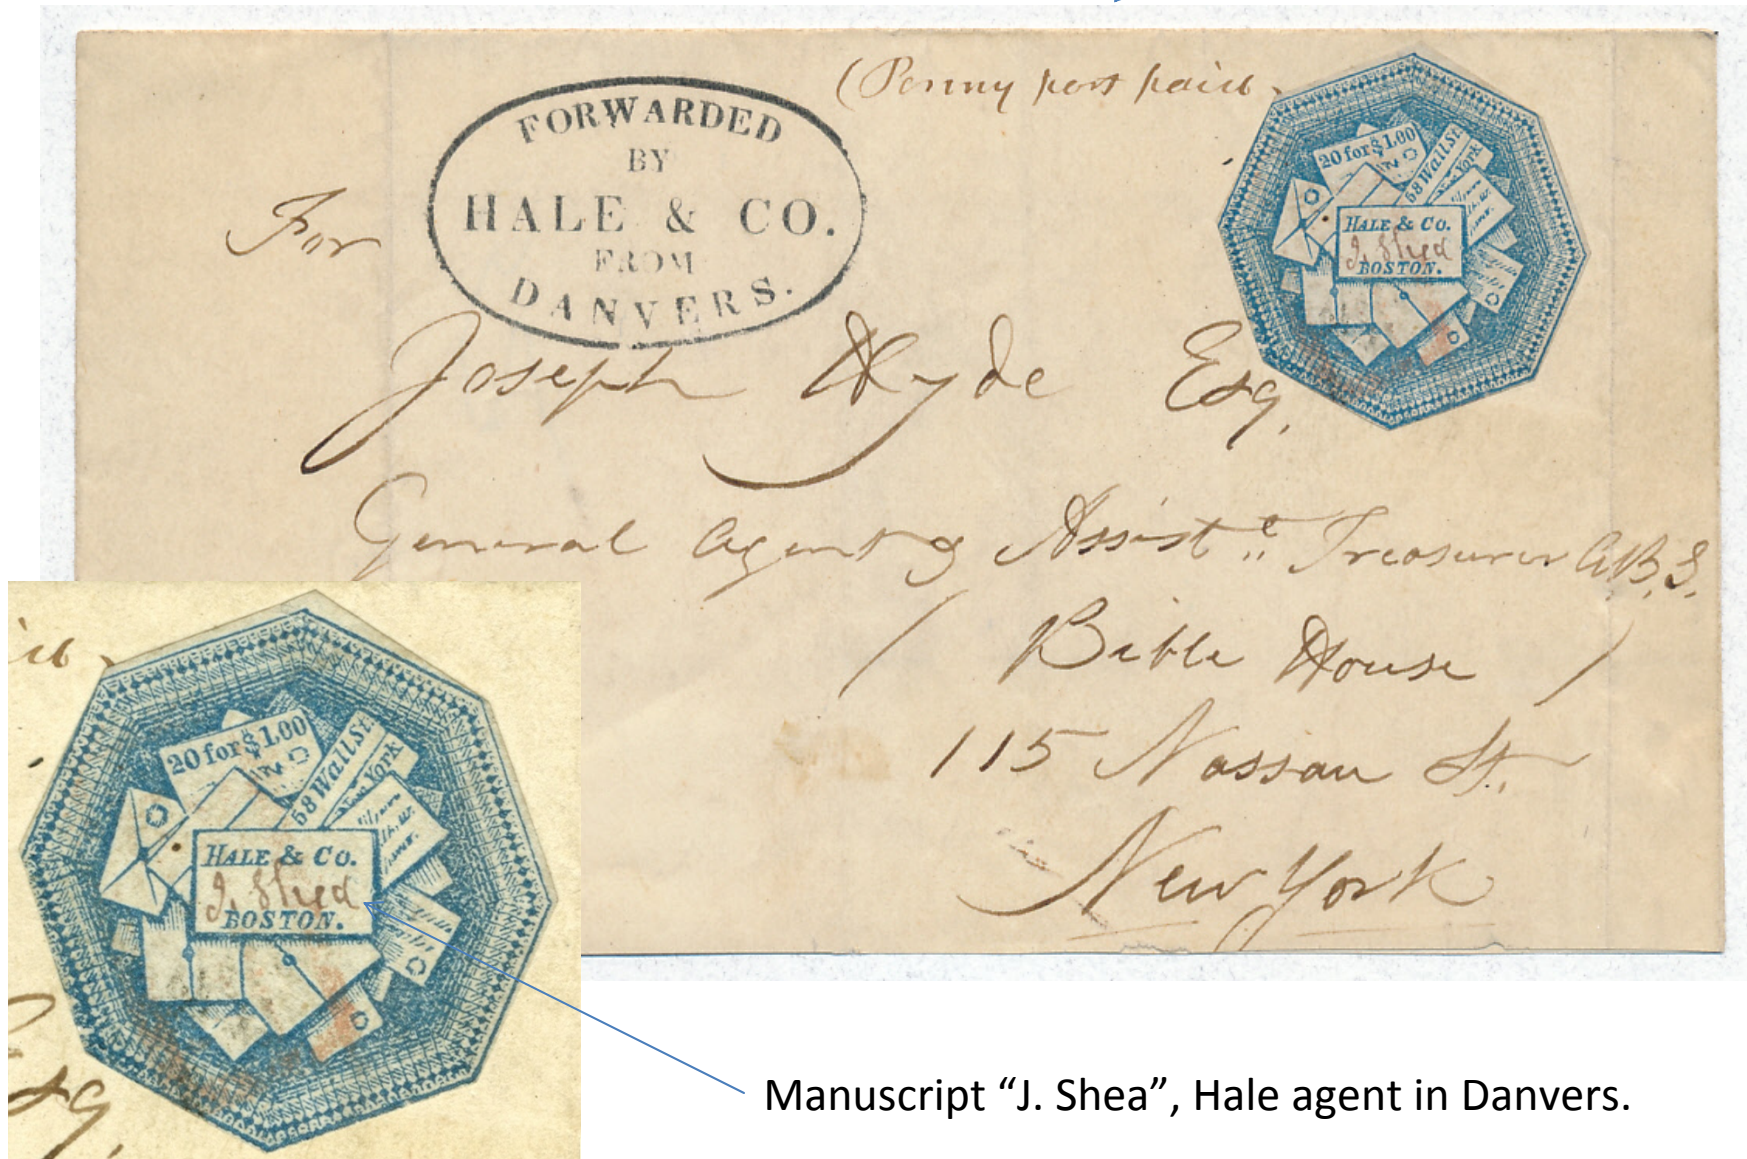 (Penny post paid.
FORWARDED
BY
HALE & CO.
FROM
DANVERS.
20 for $1.00
58 Wall St.
New York
HALE & Co.
J. Shea
BOSTON.
For
Joseph Hyde Esq.
General Agent & Assist.t Treasurer A.B.S.
( Bible House )
115 Nassau St.
New York
20 for $1.00
58 Wall St.
New York
HALE & Co.
J. Shea
BOSTON.
Esq.
Manuscript “J. Shea”, Hale agent in Danvers.